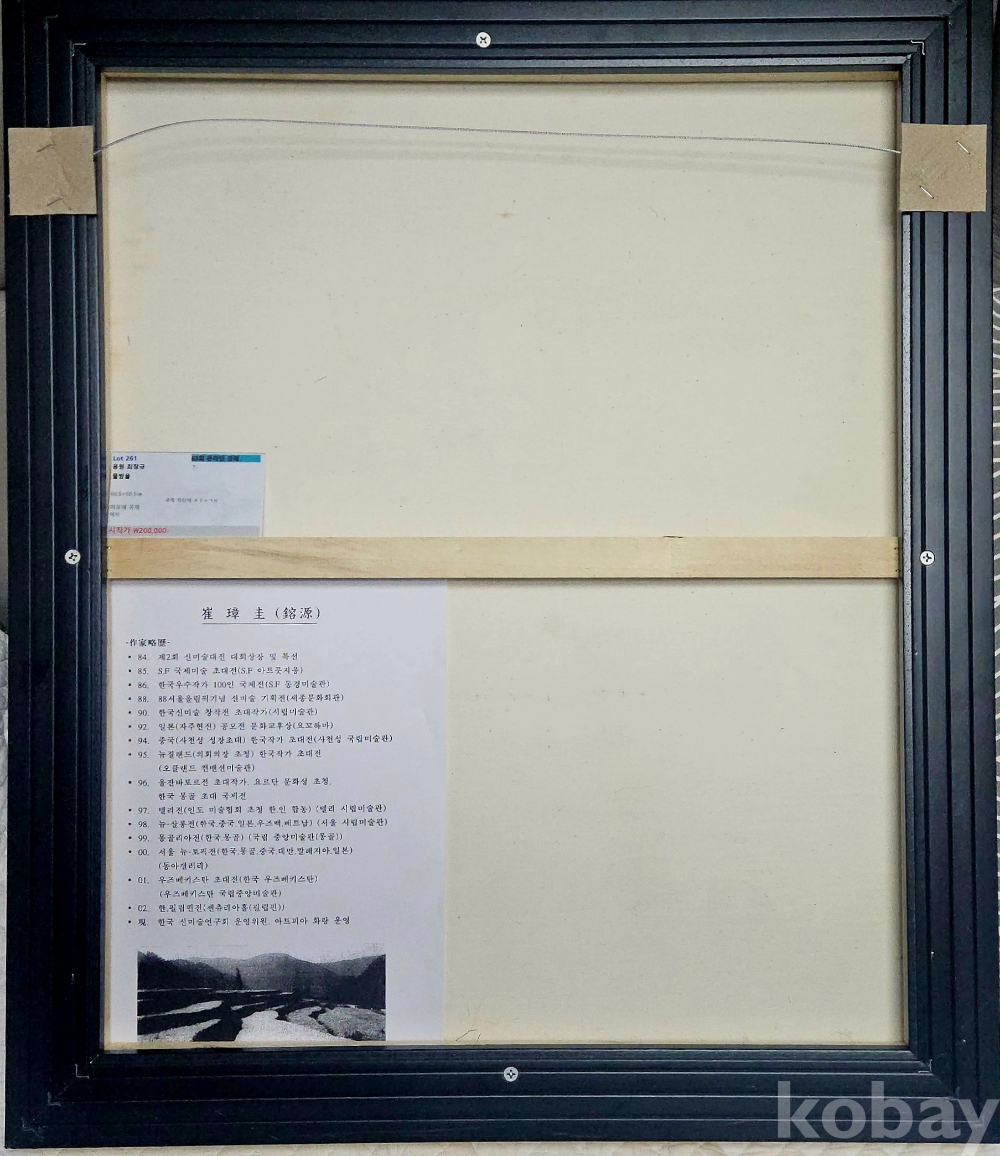 Lot 261
용원 최장규
물방울
시작가 ₩200,000
崔 璋 圭 (鎔源)
-作家略歷-
• 84. 제2회 신미술대전 대회상장 및 특선
• 85. S.F 국제미술 초대전(S.F 아트폿지움)
• 86. 한국우수작가 100인 국제전(S.F 동경미술관)
• 88. 88서울올림픽기념 신미술 기획전(세종문화회관)
• 90. 한국신미술 창작전 초대작가(시립미술관)
• 92. 일본(자주현전) 공모전 문화교류상(요꼬하마)
• 94. 중국(사천성 성장초대) 한국작가 초대전(사천성 국립미술관)
• 95. 뉴질랜드(의회의장 초청) 한국작가 초대전
(오클랜드 컨벤션미술관)
• 96. 울란바토르전 초대작가, 요르단 문화성 초청,
한국 몽골 초대 국제전
• 97. 델리전(인도 미술협회 초청 한,인 합동) (델리 시립미술관)
• 98. 뉴-살롱전(한국,중국,일본,우즈백,베트남) (서울 시립미술관)
• 99. 몽골리아전(한국,몽골) (국립 중앙미술관(몽골))
• 00. 서울 뉴-토픽전(한국,몽골,중국,대만,말레지아,일본)
(동아갤러리)
• 01. 우즈베키스탄 초대전(한국 우즈베키스탄)
(우즈베키스탄 국립중앙미술관)
• 02. 한,필립핀전(센츄리아홀(필립핀))
• 現. 한국 신미술연구회 운영위원, 아트피아 화랑 운영
kobay